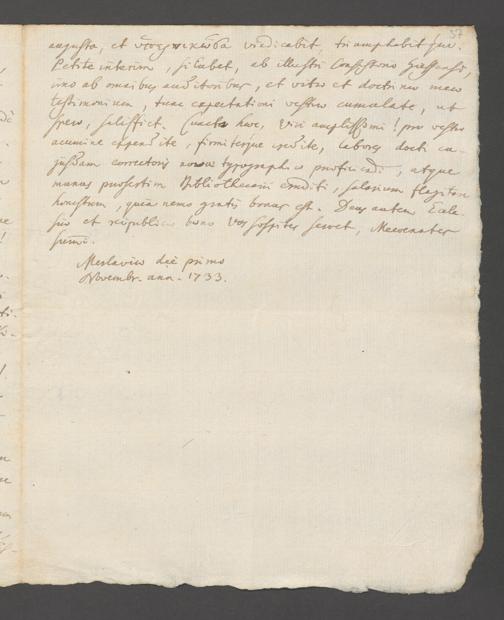 57
augusta, et vindicabit, triumphabit
Petite interim, si lubet, ab illustri Consistorio
imo ab omnibus auditoribus, et vitae et doctrinae meae
testimonium, tunc expectationi vestrae cumulate, ut
spero, satisfiet. Cuncta haec, Viri amplissimi! pro vestro
acumine expendite, firmiterque credite, labores docti cu-
jusdam correctoris novae typographiae proficuos, atque
munus praesertim Bibliothecarii eruditi, salarium flagitare
honestum, quia nemo gratis bonus est. Deus autem Eccle-
siae et reipublicae bono Vos sospites servet, Maecenates
summi.
die primo
Novembr. ann. 1733.